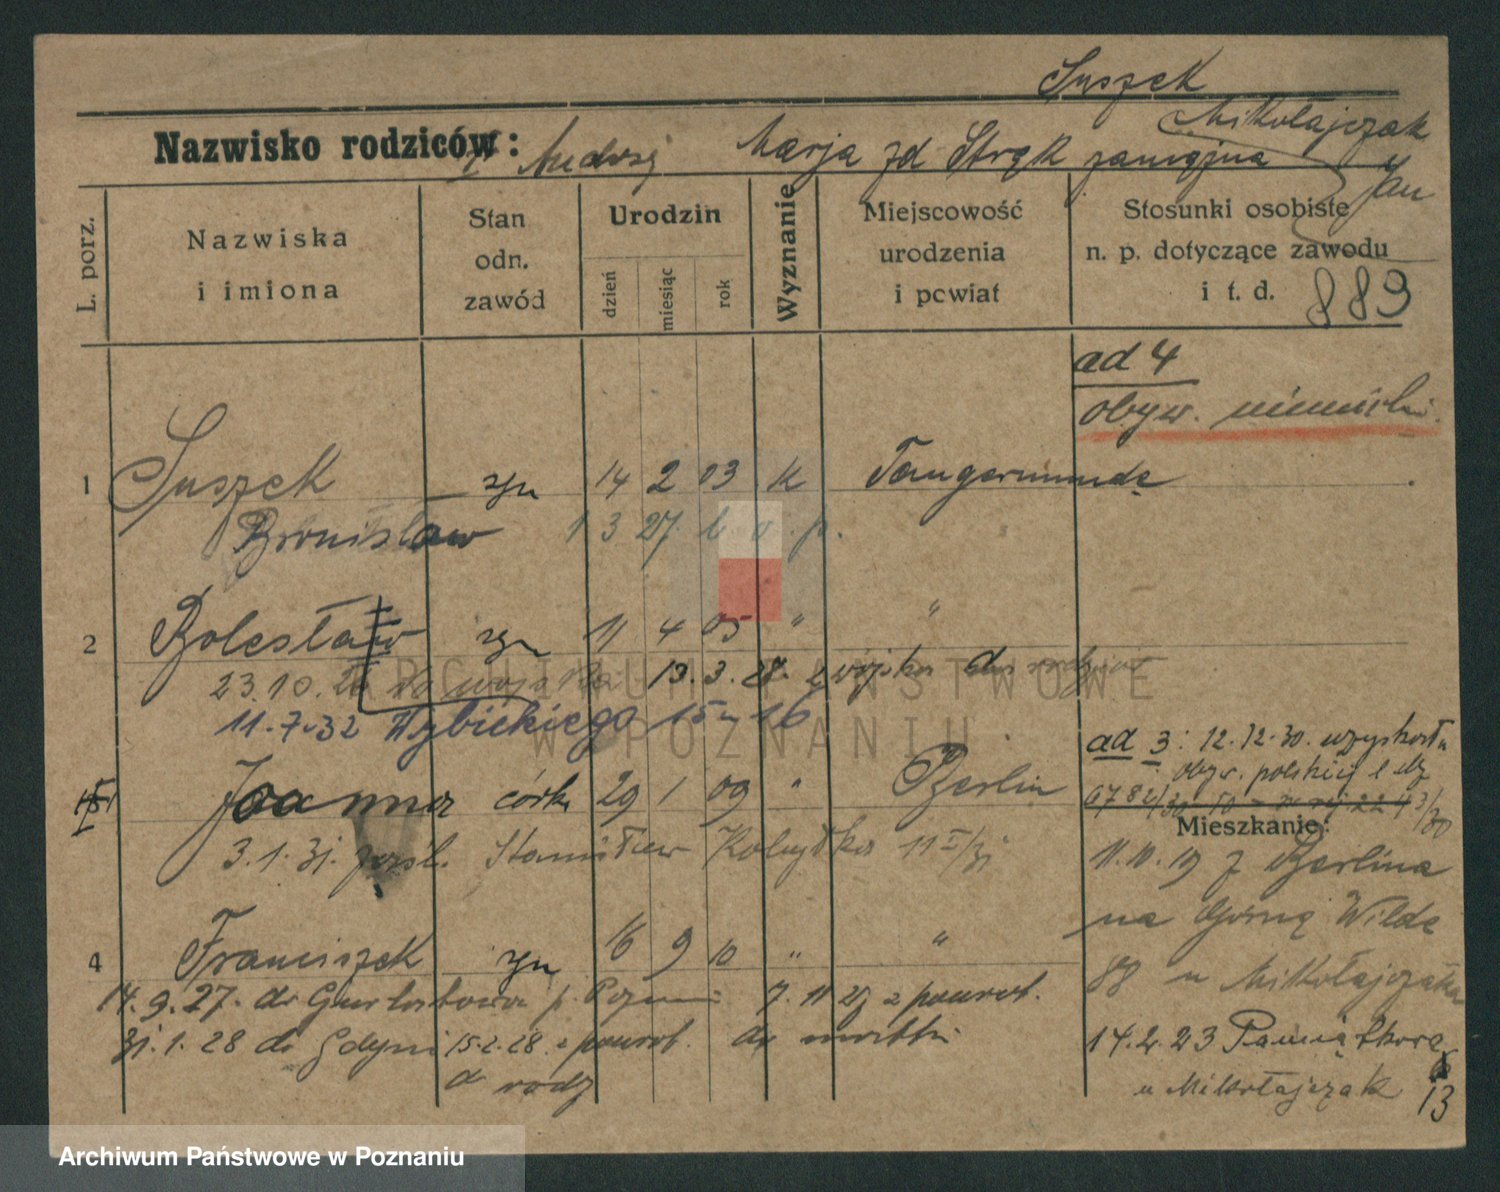 Suszek
Mikołajczak
Jan
Nazwisko rodziców: Andrzej Marja zd Strąk zamężna
L. porz.
Nazwiska i imiona
Stan odn. zawód
Urodzin
dzień miesiąc rok
Wyznanie
Miejscowość urodzenia i powiat
Stosunki osobiste n. p. dotyczące zawodu i t. d.
889
ad 4
obyw. niemiecki
1 Suszek syn 14 2 03 k Tangermünde
Bronisław 1 3 27
2 Bolesław syn 11 4 05 " "
23.10.26 do wojska 13.3.28 z wojska do
11.7.32 Wybickiego 15 16
ad 3: 12.12.30. uzyskała
obyw. polskie
Joanna córka 29 1 09 " Berlin
Mieszkanie:
3.1.31. Stanisław 11
11.10.19 z Berlina
na Górną Wildę
4 Franciszek syn 16 9 10 " "
88 u Mikołajczaka
14.9.27. do p. 7.11 27 z powrot.
31.1.28 do Gdyni 15.2.28. z powrot. do matki
14.2.23 Pamiątkowa
u Mikołajczak 13
ARCHIWUM PAŃSTWOWE
W POZNANIU
Archiwum Państwowe w Poznaniu